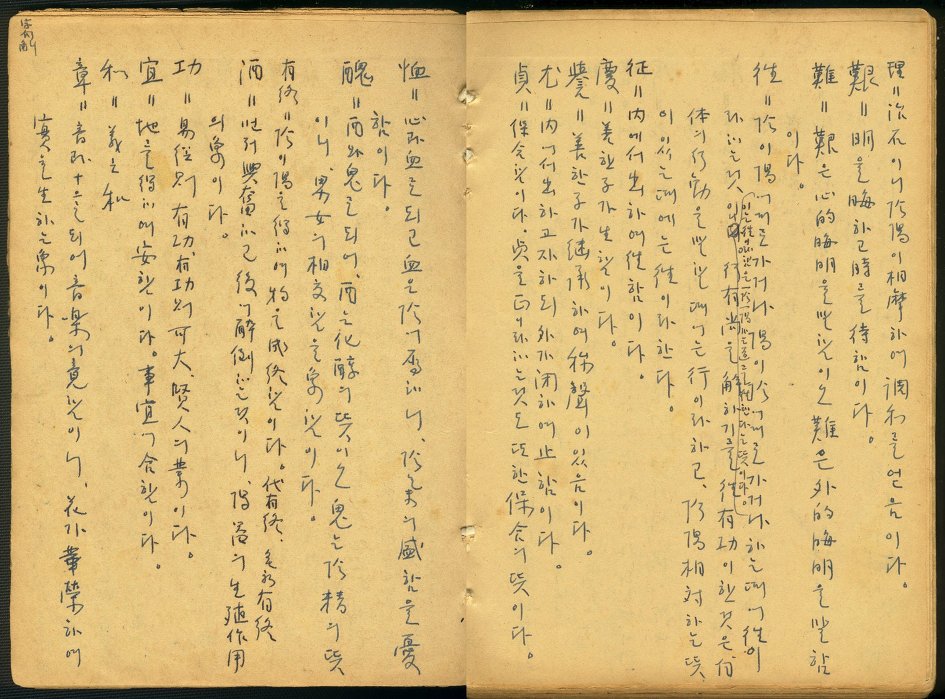 理=治石이니 陰陽이相摩하여 調和를얻음이다。
艱=明을晦하고時를待함이다。
難=艱은心的晦明을말함이오 難은外的晦明을말함
이다。
往=陰이陽에게로가거나 陽이陰에게로가거나하는때에往이
라하는것이며 行有尙을解하기를往有功이한것은
體의行動을말할때에는行이라하고、陰陽相對하는뜻
이있는때에는往이라한다。
征=內에서出하여往함이다。
慶=善한子가生함이다。
譽=善한子가繼承하여称聲이있음이다。
尤=內에서出하고자하되外가閑하여止함이다。
貞=保合함이다。貞을正이라하는것도또한保合의뜻이다。
恤=心과血로되고血은陰에屬하니、陰의盛함을憂
함이다。
醜=酉와鬼로되니、酉는化醇의뜻이오鬼는陰精의뜻
이니、男女의相交함을象함이다。
有終=陰이陽을得하여物을成終함이다。代有終、有終
酒=로興奮하고後에醉倒하는것이니、陽器의生殖作用
의象이다。
功=易從則有功、有功則可大、賢人의業이다。
宜=地를得하여安함이다。事宜에合함이다。
和=義之和
章=音과十으로되어音樂의竟함이니、花가華榮하여
實을生하는象이다。